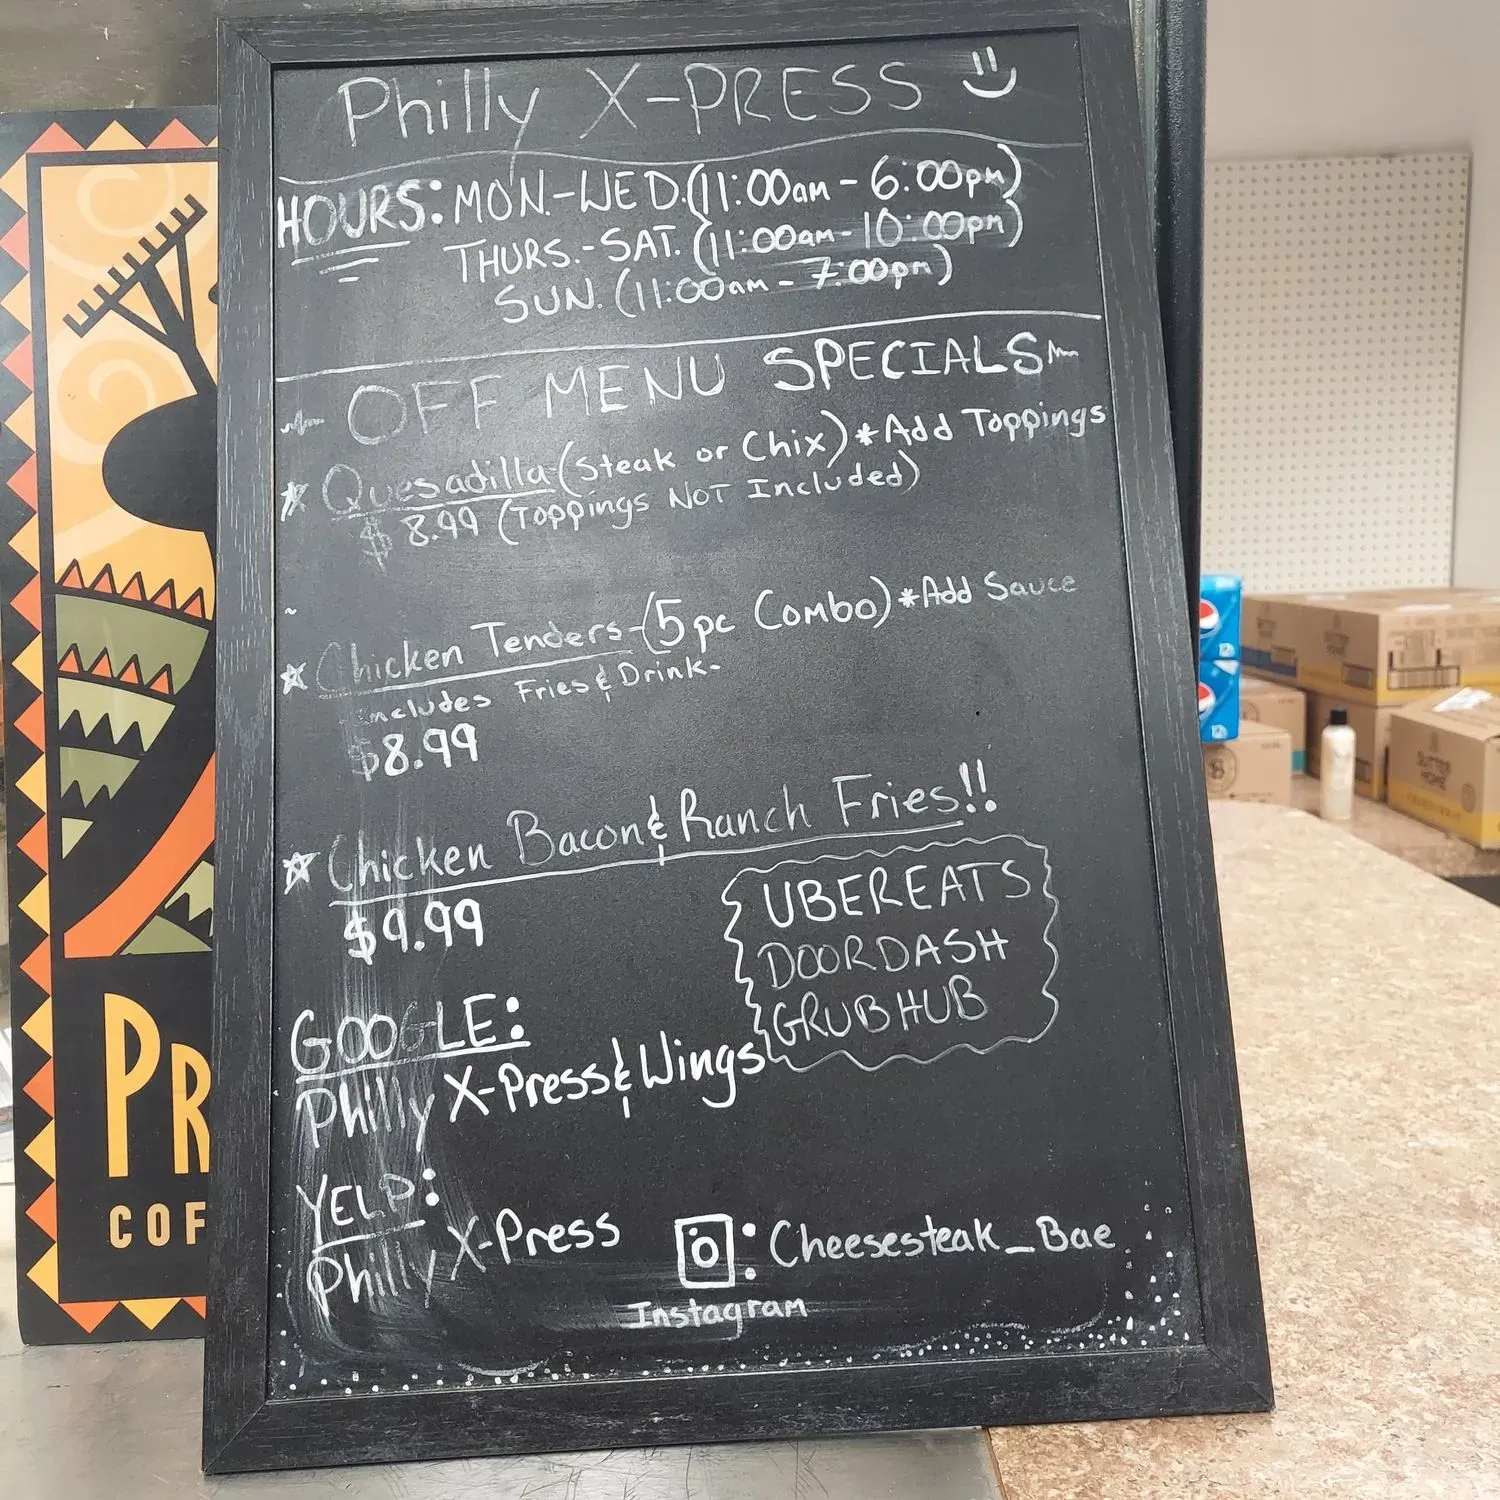 Philly X-PRESS
HOURS: MON.-WED. (11:00am - 6:00pm)
THURS.-SAT. (11:00am - 10:00pm)
SUN. (11:00am - 7:00pm)
OFF MENU SPECIALS
Quesadilla (Steak or Chix) *Add Toppings
$8.99 (Toppings NOT Included)
Chicken Tenders-(5pc Combo) *Add Sauce
includes Fries & Drink-
$8.99
Chicken Bacon & Ranch Fries!!
$9.99
UBEREATS
DOORDASH
GRUBHUB
GOOGLE:
Philly X-Press & Wings
YELP:
Philly X-Press
: Cheesesteak_Bae
Instagram
PR
COF